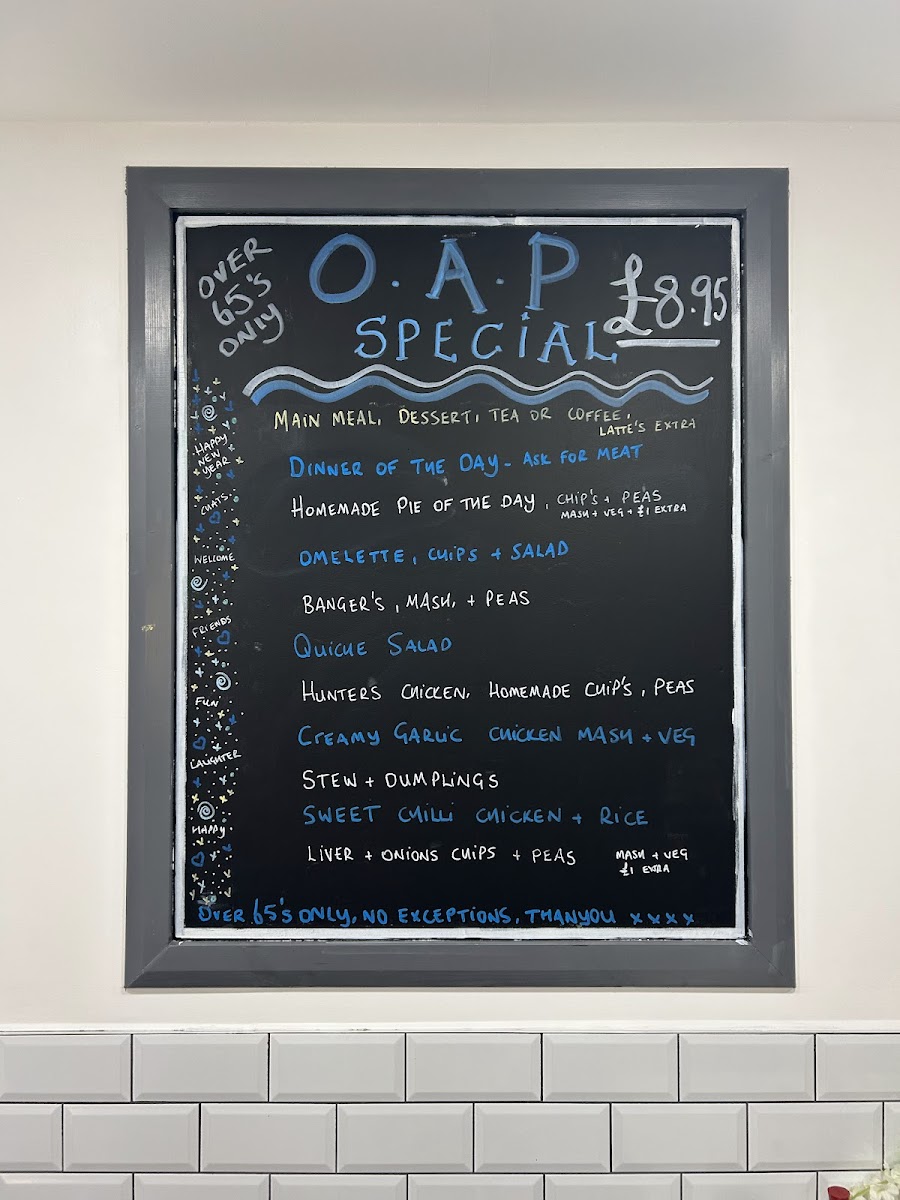 OVER
65's
ONLY
O.A.P
SPECiAL
£8.95
MAIN MEAL, DESSERT, TEA OR COFFEE,
LATTE'S EXTRA
DINNER OF THE DAY - ASK FOR MEAT
HOMEMADE PIE OF THE DAY, CHIP'S + PEAS
MASH + VEG + £1 EXTRA
OMELETTE, CHIPS + SALAD
BANGER'S, MASH, + PEAS
QUICHE SALAD
HUNTERS CHICKEN, HOMEMADE CHIP'S, PEAS
CREAMY GARLiC CHICKEN MASH + VEG
STEW + DUMPLiNGS
SWEET CHiLLi CHICKEN + RiCE
LiVER + ONiONS CHIPS + PEAS
MASH + VEG
£1 EXTRA
OVER 65's ONLY, NO EXCEPTIONS, THANYOU x x x x
HAPPY
NEW
YEAR
CHATS
WELCOME
FRIENDS
FUN
LAUGHTER
HAPPY